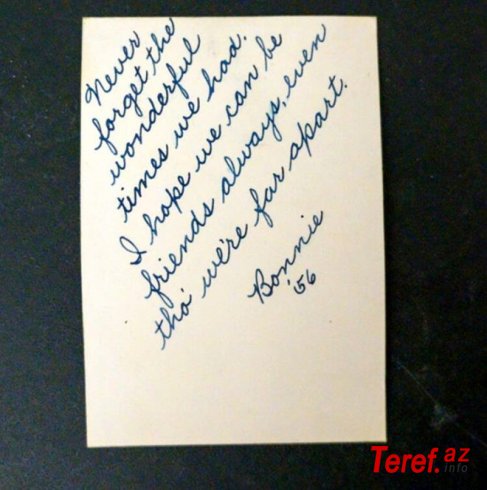 Never
forget the
wonderful
times we had.
I hope we can be
friends always, even
tho' we're far apart.
Bonnie
'56
Teref.az
info